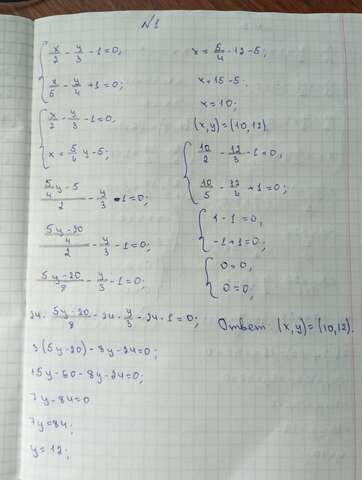 №1
{ x/2 - y/3 - 1 = 0,
x/5 - y/4 + 1 = 0;
{ x/2 - y/3 - 1 = 0,
x = 5/4 y - 5;
(5/4 y - 5)/2 - y/3 - 1 = 0;
((5y - 20)/4)/2 - y/3 - 1 = 0;
(5y - 20)/8 - y/3 - 1 = 0;
24 · (5y - 20)/8 - 24 · y/3 - 24 · 1 = 0;
3(5y - 20) - 8y - 24 = 0;
15y - 60 - 8y - 24 = 0;
7y - 84 = 0
7y = 84;
y = 12;
x = 5/4 · 12 - 5;
x = 15 - 5;
x = 10;
(x, y) = (10, 12).
{ 10/2 - 12/3 - 1 = 0,
10/5 - 12/4 + 1 = 0;
{ 1 - 1 = 0,
-1 + 1 = 0;
{ 0 = 0,
0 = 0;
Ответ: (x, y) = (10, 12).